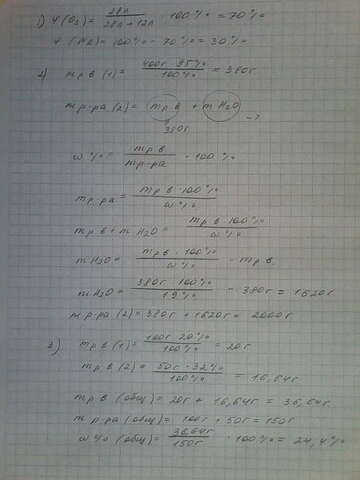 1) φ(O₂) = 28л / 28л + 12л · 100% = 70%
φ(N₂) = 100% - 70% = 30%
2) m р.в (1) = 400г · 95% / 100% = 380г
m р-ра (2) = m р.в + m H₂O
380г - ?
ω% = m р.в / m р-ра · 100%
m р-ра = m р.в · 100% / ω%
m р.в + m H₂O = m р.в · 100% / ω%
m H₂O = m р.в · 100% / ω% - m р.в
m H₂O = 380г · 100% / 19% - 380г = 1620г
m р-ра (2) = 380г + 1620г = 2000г
3) m р.в (1) = 100г · 20% / 100% = 20г
m р.в (2) = 50г · 32% / 100% = 16,64г
m р.в (общ) = 20г + 16,64г = 36,64г
m р-ра (общ) = 100г + 50г = 150г
ω% (общ) = 36,64г / 150г · 100% = 24,4%